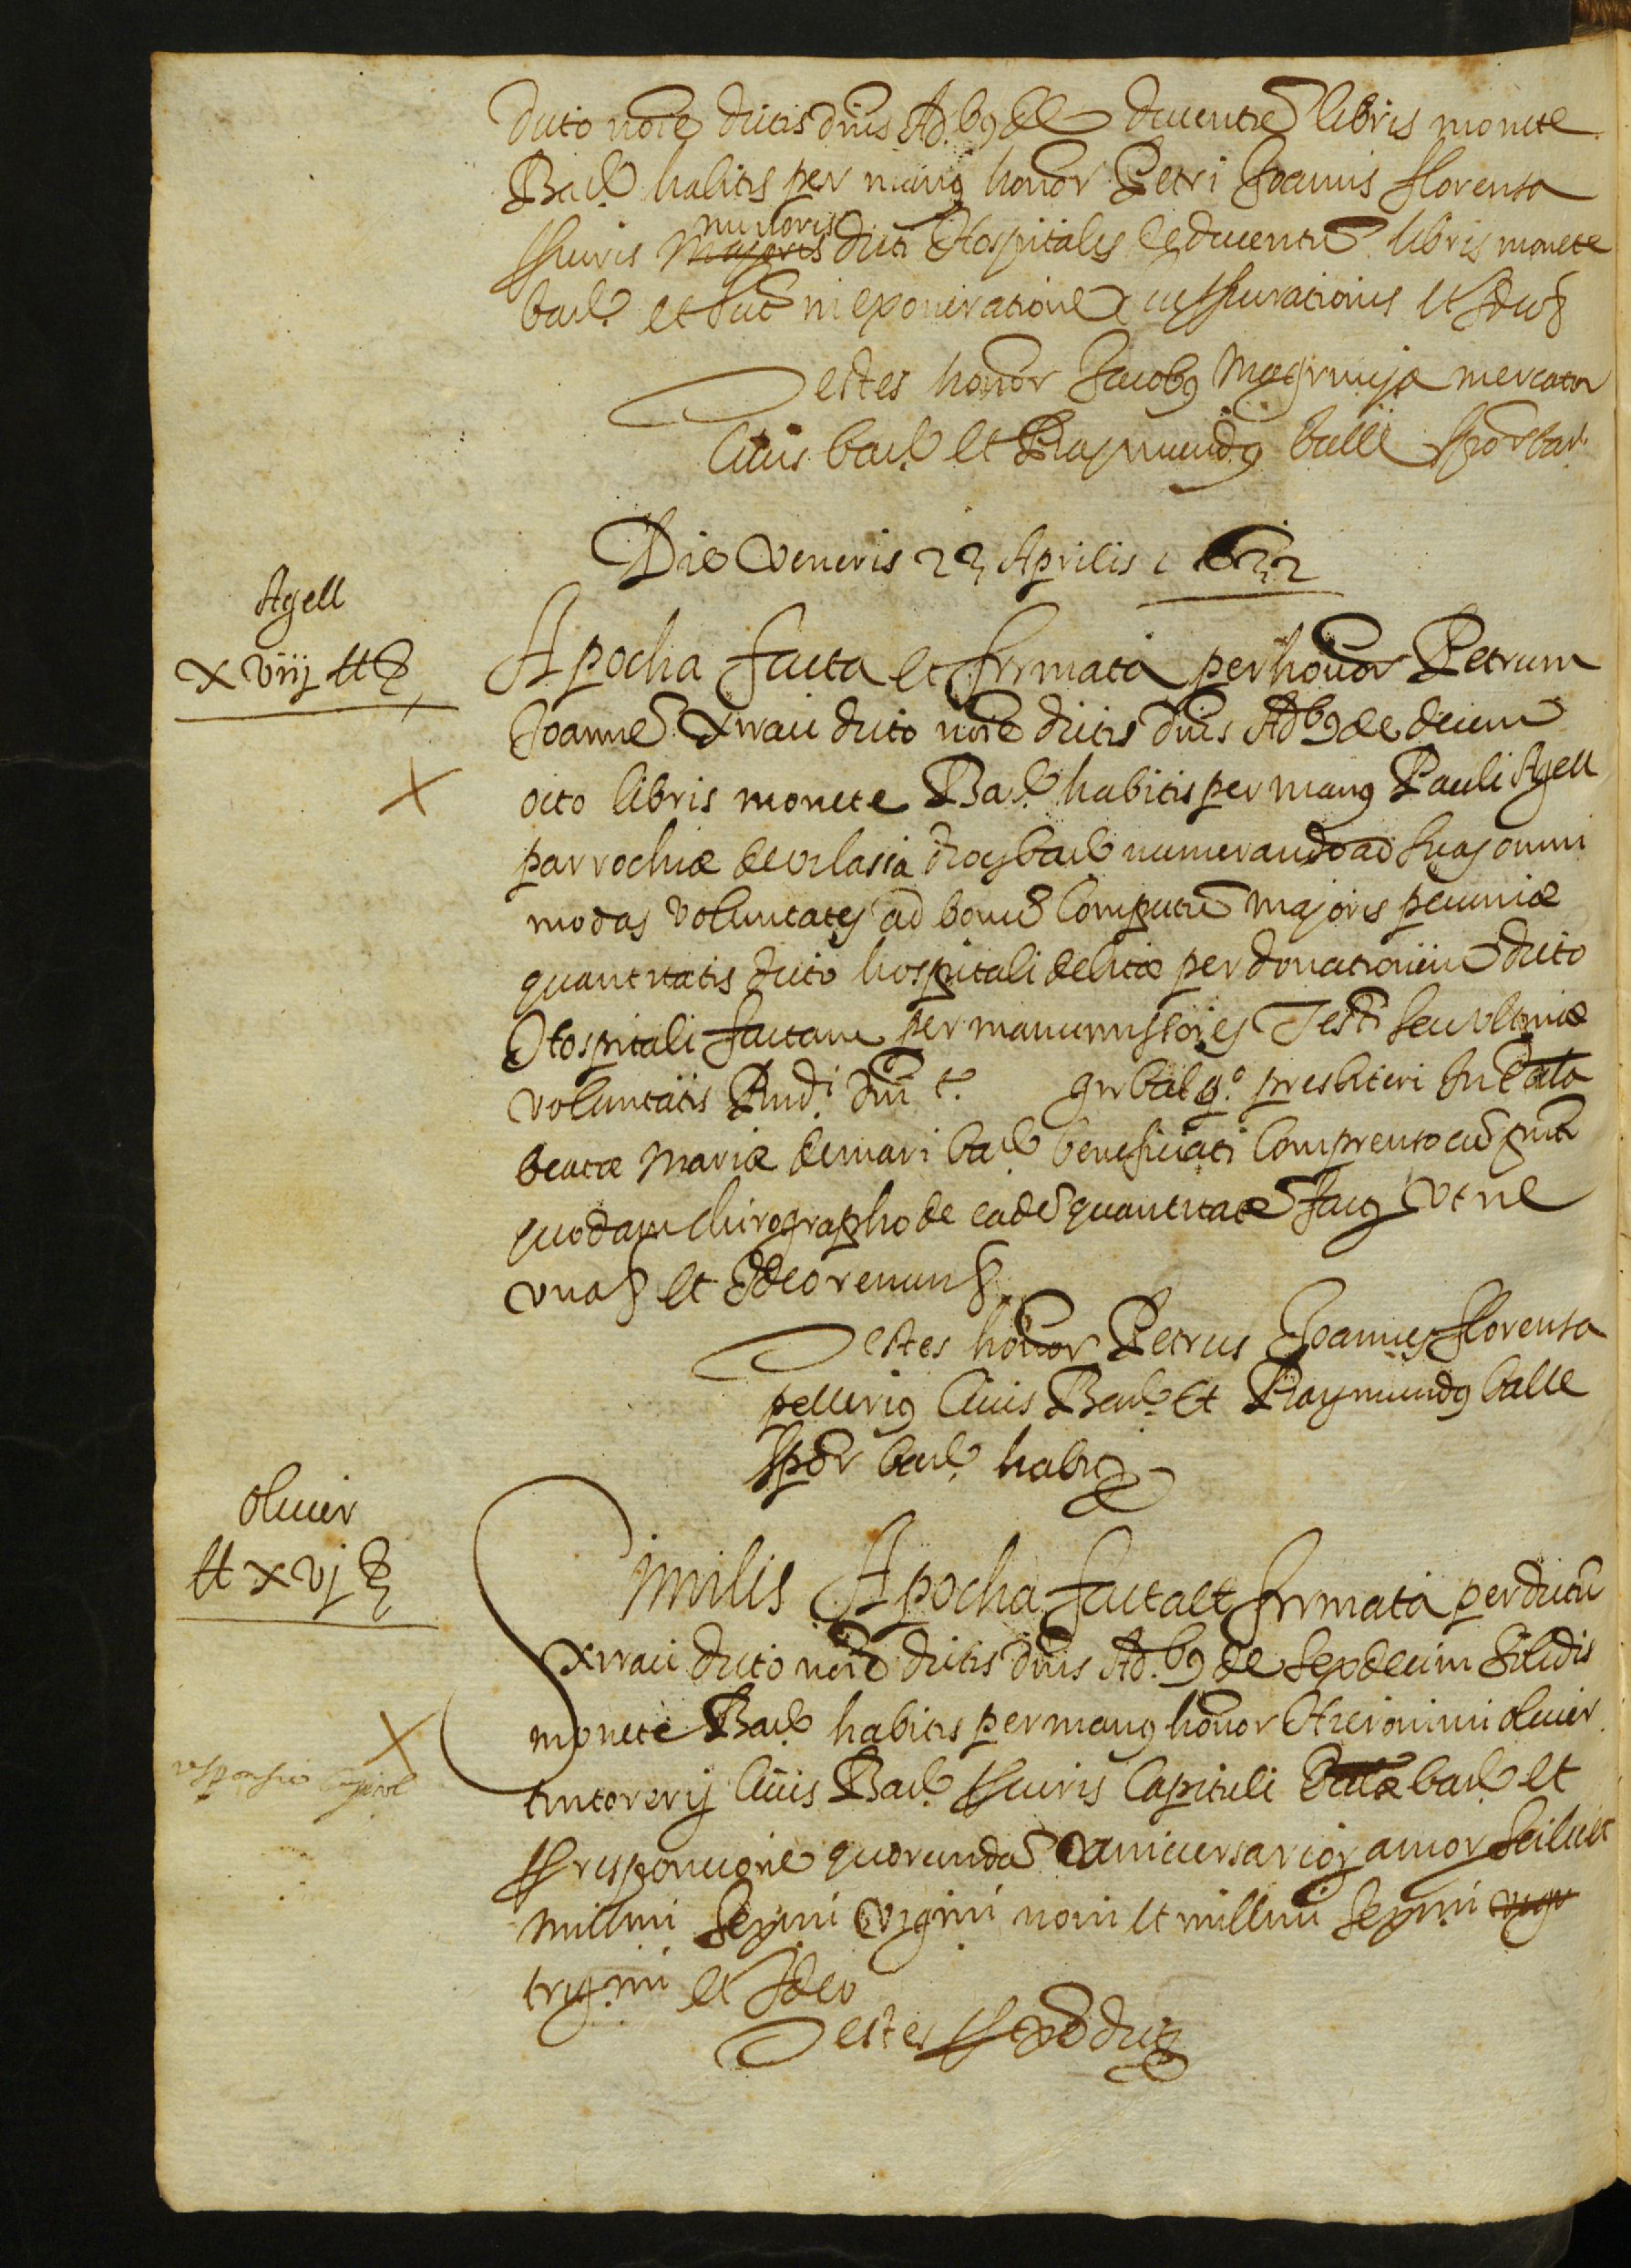 dicto noīe dictis dnis Ad.b9 de ducentis libris monete
Barc. habitis per manus honor Petri Joannis florensa
minoris
Majoris dicti Hospitalis de ducentis libris monete
barc. et sunt in exoneratione et Ideo
Testes honor Jacob9 Magrinya mercator
Civis barc. et Raymund9 balle barc.
Die Veneris 22 Aprilis 1622
Agell
xviij ll
Apocha facta et firmata per honor Petrum
Joannē Xirau dicto noīe dictis dnis Ad.b9 de decem
octo libris monete Barc. habitis per manus Pauli Agell
parrochiæ de Vilasia diocs barc. numerando ad suas omni
modas voluntates ad bonū Computū majoris pecuniæ
quantitatis dicto hospitali debitæ per donationem dicto
Hospitali factam per manumissores Testi seu vltimæ
voluntatis Rnd.i dni t. girbal q.o presbiteri in Ecclā
beatæ Mariæ de mari barc. beneficiati Comprenso cū pnti
quodam chirographo de eadē quantitate facto vt ne
vna et Ideo renun
Testes honor Petrus Joannes florensa
pelleri9 Civis Barc. et Raymund9 balle
barc. habit
Oliver
ll xvj
Similis Apocha facta et firmata per dictū
Xirau dicto noīe dictis dnis Ad.b9 de sexdecim solidis
monete Barc. habitis per manus honor Hieronimi oliver
tintorerij Civis Barc. Capituli barc. et
responcione quorundā Anniversarior annor scilicet
millmi sexmi vigmi noni et millmi sexmi vigi
trigmi et Ideo
Testes dicti